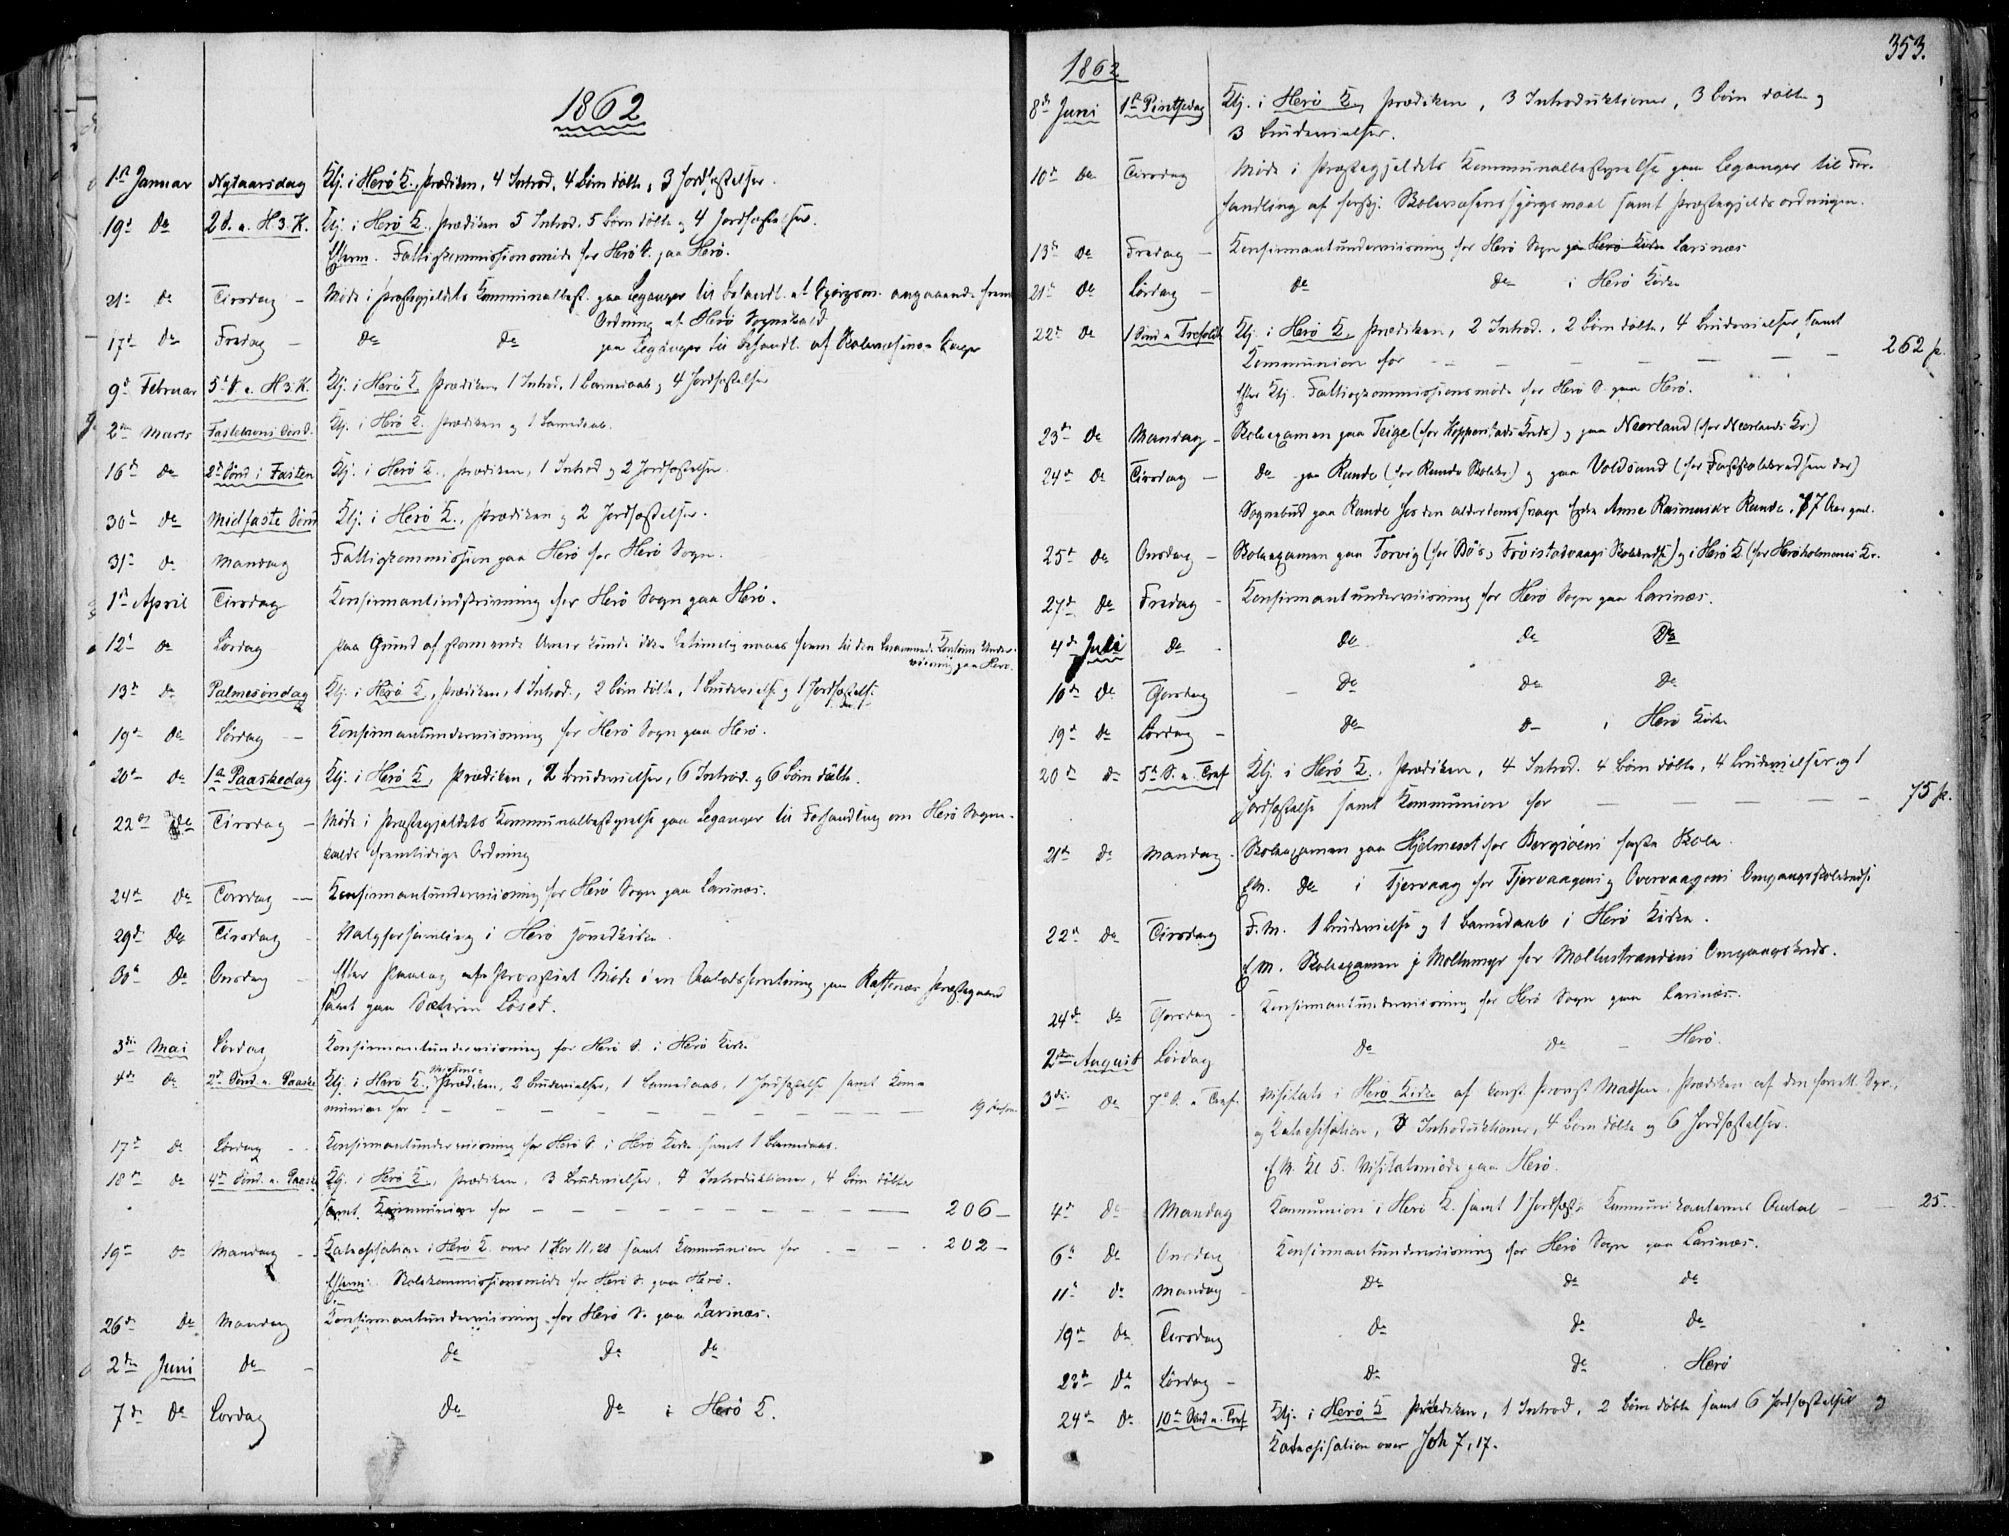 1862
1st Januar Nytaarsdag Tj. i Herö K., Prædiken, 4 Introd., 4 Börn döbte, 3 Jordfæstelser.
19de Do 2 S. e. H.3.K. Tj. i Herö K., Prædiken 5 Introd. 5 Börn döbte og 4 Jordfæstelser.
Efterm. Fattigkommissionsmöde for Herö S. paa Herö.
21de Do Tirsdag - Möde i Præstegjeldets Kommunalbest. paa Leganger til Behandl. af Spörgsm. angaaende frem
Ordning af Herö Sognekald
17de Do Fredag - Do Do paa Leganger til Behandl. af Skolevæsens
9de Februar 5te S. e. H.3.K. Tj. i Herö K., Prædiken 1 Introd., 1 Barnedaab, 4 Jordfæstelser
2den Marts Fastelavns Sönd. Tj. i Herö K. Prædiken og 1 Barnedaab.
16de Do 2d Sönd i Fasten Tj. i Herö K., Prædiken, 1 Introd og 2 Jordfæstelser
30te Do Midfaste Sönd Tj. i Herö K., Prædiken og 2 Jordfæstelser.
31te Do Mandag Fattigkommission paa Herö for Herö Sogn.
1st April Tirsdag Konfirmantindskrivning for Herö Sogn paa Herö.
12te Do Lördag Paa Grund af stormende Veir kunde ikke betimelig naaes frem til den berammede Konfirm. Under-
viisning paa Herö.
13de Do Palmesöndag Tj. i Herö K., Prædiken, 1 Introd., 2 Börn döbte, 1 Brudevielse og 1 Jordfæstelse
19de Do Lördag - Konfirmantunderviisning for Herö Sogn paa Herö.
20de Do 1ste Paaskedag Tj. i Herö K., Prædiken, 2 Brudevielser, 6 Introd. og 6 Börn döbte.
22de Do Tirsdag - Möde i Præstegjeldets Kommunalbestyrelse paa Leganger til Forhandling om Herö Sogne-
kalds fremtidige Ordning
24de Do Torsdag - Konfirmantunderviisning for Herö Sogn paa Larsnæs.
29de Do Tirsdag Valgforsamling i Herö Hovedkirke.
30te Do Onsdag - Efter Paalæg af Provstiet Möde i en Aabodsforretning paa Præstegaard
samt paa Sæteren Löset.
3die Mai Lördag Konfirmantunderviisning for Herö S. i Herö Kirke
4de Do 2d Sönd e. Paaske Tj. i Herö K., Missions-Prædiken, 2 Brudevielser, 1 Barnedaab, 1 Jordfæstelse samt Kom-
munion for - - - - - - - - - - 19
17de Do Lördag - Konfirmantunderviisning for Herö S. i Herö Kirke samt 1 Barnedaab.
18de Do 4de Sönd. e. Paaske Tj. i Herö K., Prædiken, 3 Brudevielser, 4 Introduktioner, 4 Börn döbte
samt Kommunion for - - - - - - - - 206 -
19de Do Mandag - Katechisation i Herö K. over 1 Kor 11,28 samt Kommunion for - - - 202 -
Efterm. Skolekommissionsmöde for Herö S. paa Herö.
26de Do Mandag Konfirmantunderviisning for Herö S. paa Larsnæs.
2den Juni Do - Do Do Do
7de Do Lördag Do Do i Herö K.
353.
1862
8de Juni 1st Pintsedag Tj. i Herö K., Prædiken, 3 Introduktioner, 3 Börn döbte og
3 Brudevielser.
10de Do Tirsdag Möde i Præstegjeldets Kommunalbestyrelse paa Leganger til For-
handling af forskj. Skolevæsensspörgsmaal samt Præstegjeldsordningen.
13de Do Fredag - Konfirmantunderviisning for Herö Sogn paa Herö Kirke Larsnæs
21de Do Lördag - Do Do i Herö Kirke
22de Do 1 Sönd e Trefoldh Tj. i Herö K., Prædiken, 2 Introd., 2 Börn döbte, 4 Brudevielser, samt
Kommunion for - - - - - - 262 p.
Efter Tj. Fattigkommissionsmöde for Herö S. paa Herö.
23de Do Mandag - Skoleexamen paa Teige (for Kopperstads Kreds) og paa Nærland (for Nærlands Kr.)
24de Do Tirsdag - Do paa Runde (for Runde Skolekr.) og paa Voldsund (for Fastskolekredsen der)
Sognebud paa Runde hos den alderdomssvage Enke Anne Rasmusdr Runde, 87 Aar gml.
25de Do Onsdag - Skoleexamen paa Torvig (for Bös og Fröistadvaags Skolekreds) og i Herö K. (for Heröholmens Kr.
27de Do Fredag - Konfirmantunderviisning for Herö Sogn paa Larsnæs.
4de Juli Do Do Do Do
10de Do Torsdag - Do Do Do
19de Do Lördag - Do Do i Herö Kirke
20de Do 5te S. e. Tref Tj. i Herö K., Prædiken, 4 Introd. 4 Börn döbte, 4 Brudevielser og 1
Jordfæstelse samt Kommunion for - - - - - 75 p.
21de Do Mandag - Skoleexamen paa Hjelmeset for Bergsöens faste Skole.
E.M. Do i Tjervaag for Tjervaagens og Overvaagens Omgangsskolekreds
22de Do Tirsdag F.M. 1 Brudevielse og 1 Barnedaab i Herö Kirke.
E.M. Skoleexamen i Moltumyr for Moltustrandens Omgangskreds.
24de Do Torsdag - Konfirmantunderviisning for Herö Sogn paa Larsnæs.
2den August Lördag Do Do - Herö.
3die Do 7de S. e Tref. Visitats i Herö Kirke af const. Provst Madsen. Prædiken af den
og Katechisation, 3 Introduktioner, 4 Börn döbte og 6 Jordfæstelser.
E.M. Kl 5. Visitatsmöde paa Herö.
4de Do Mandag Kommunion i Herö K. samt 1 Jordfæst. Kommunikanternes Antal - - 25.
6te Do Onsdag Konfirmantunderviisning for Herö Sogn paa Larsnæs.
11te Do Mandag - Do Do do
19de Do Tirsdag Do Do Do
23de Do Lördag - Do Do Herö
24de Do 10de Sönd e. Tref Tj. i Herö K Prædiken, 1 Introd., 2 Börn döbte samt 6 Jordfæstelser og
Katechisation over Joh 7,17.